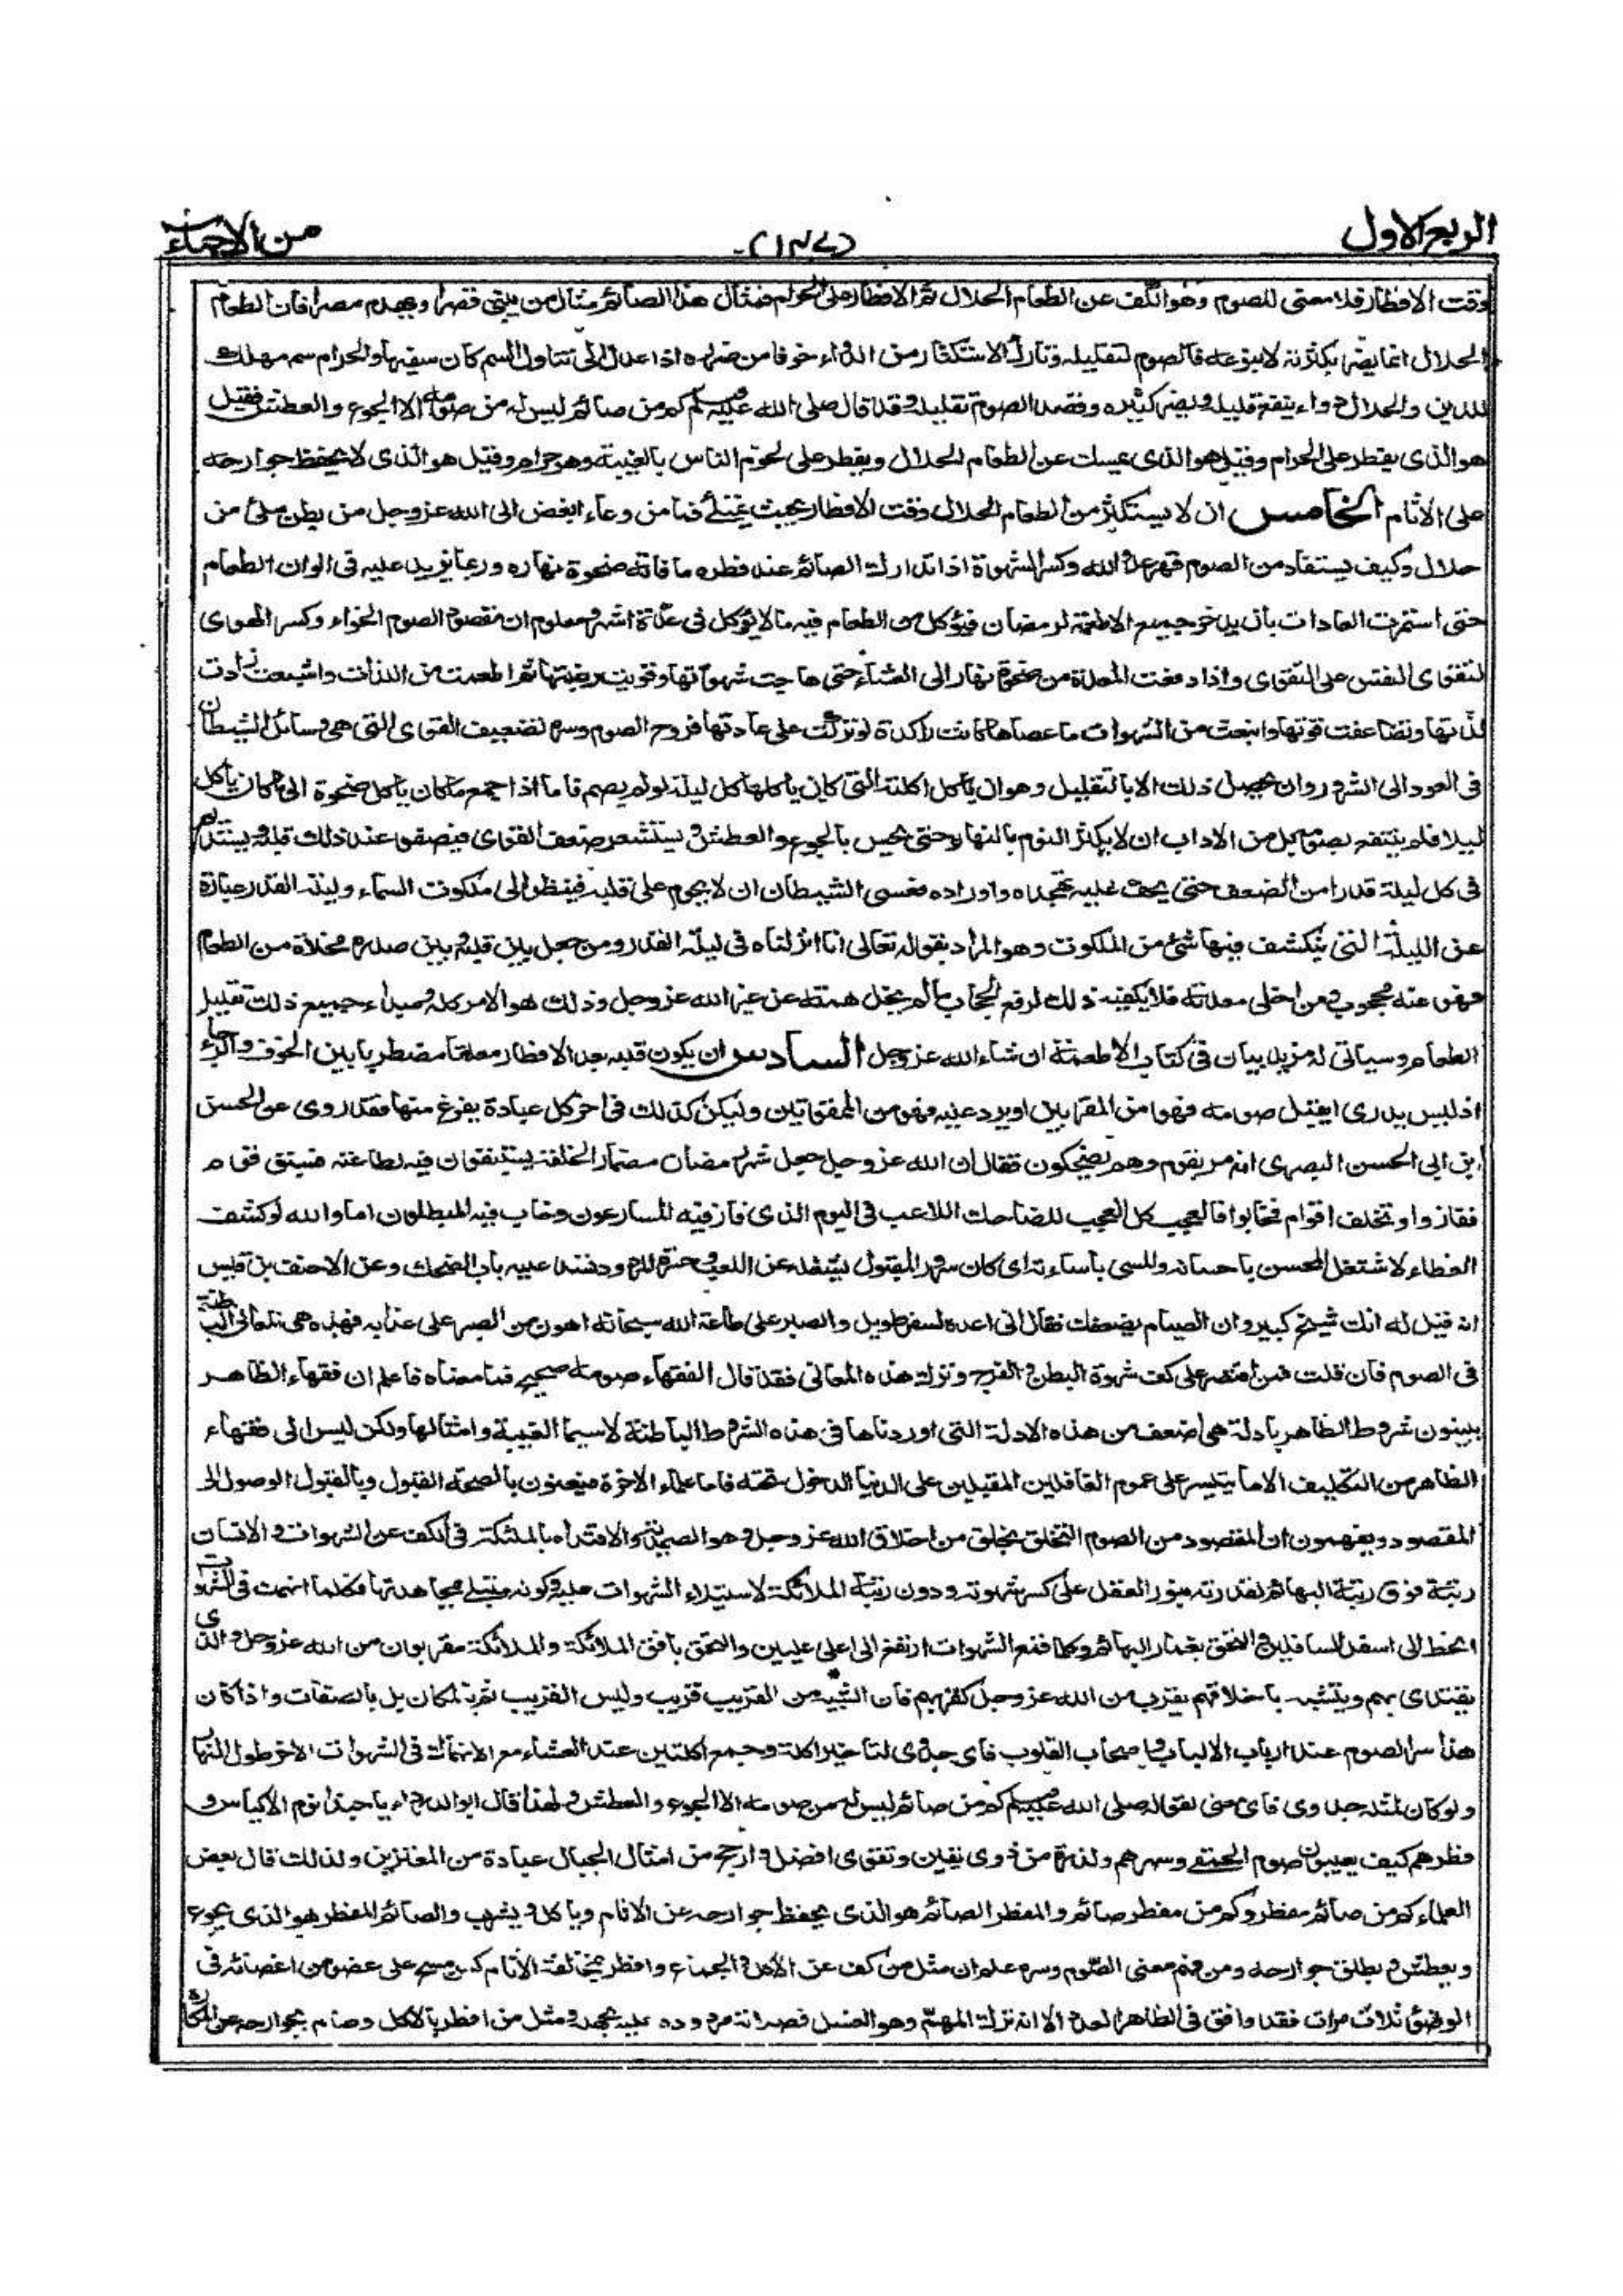 الربع الاول
من الاحياء
وقت الافطار فلا معنى للصوم وهو الكف عن الطعام الحلال ثم الافطار على الحرام فمثال هذا الصائم مثال من يبنى قصرا ويهدم مصرا فان الطعام
الحلال انما يضر بكثرته لا بنوعه فالصوم لتقليله وتارك الاستكثار من الدواء خوفا من ضرره اذا عدل الى تناول السم كان سفيها والحرام سم مهلك
للدين والحلال دواء ينفع قليله ويضر كثيره وقصد الصوم تقليله وقد قال صلى الله عليه وسلم كم من صائم ليس له من صومه الا الجوع والعطش فقيل
هو الذى يفطر على الحرام وقيل هو الذى يمسك عن الطعام الحلال ويفطر على لحوم الناس بالغيبة وهو حرام وقيل هو الذى لا يحفظ جوارحه
على الآثام الخامس ان لا يستكثر من الطعام الحلال وقت الافطار بحيث يمتلئ فما من وعاء ابغض الى الله عز وجل من بطن ملئ من
حلال وكيف يستفاد من الصوم قهر عدو الله وكسر الشهوة اذا تدارك الصائم عند فطره ما فاته ضحوة نهاره وربما يزيد عليه فى الوان الطعام
حتى استمرت العادات بان يدخر جميع الاطعمة لرمضان فيؤكل من الطعام فيه ما لا يؤكل فى عدة اشهر ومعلوم ان مقصود الصوم الخواء وكسر الهوى
لتقوى النفس على التقوى واذا دفعت المعدة من ضحوة نهار الى العشاء حتى هاجت شهوتها وقويت رغبتها ثم اطعمت من اللذات واشبعت زادت
لذتها وتضاعفت قوتها وانبعث من الشهوات ما عصاها كانت راكدة لو تركت على عادتها فروح الصوم وسره تضعيف القوى التى هى وسائل الشيطان
فى العود الى الشرور ولن يحصل ذلك الا بالتقليل وهو ان ياكل اكلته التى كان ياكلها كل ليلة لو لم يصم فاما اذا جمع ما كان ياكل ضحوة الى ما كان ياكل
ليلا فلم ينتفع بصومه بل من الاداب ان لا يكثر النوم بالنهار حتى يحس بالجوع والعطش ويستشعر ضعف القوى فيصفو عند ذلك قلبه ويستديم
فى كل ليلة قدرا من الضعف حتى يخف عليه تهجده واوراده فعسى الشيطان ان لا يحوم على قلبه فينظر الى ملكوت السماء وليلة القدر عبارة
عن الليلة التى ينكشف فيها شئ من الملكوت وهو المراد بقوله تعالى انا انزلناه فى ليلة القدر ومن جعل بين قلبه وبين صدره مخلاة من الطعام
فهو عنه محجوب ومن اخلى معدته فلا يكفيه ذلك لرفع الحجاب ما لم يخل همته عن غير الله عز وجل وذلك هو الامر كله ومبدأ جميع ذلك تقليل
الطعام وسياتى له مزيد بيان فى كتاب الاطعمة ان شاء الله عز وجل السادس ان يكون قلبه بعد الافطار معلقا مضطربا بين الخوف والرجاء
اذ ليس يدرى ايقبل صومه فهو من المقربين او يرد عليه فهو من الممقوتين وليكن كذلك فى اخر كل عبادة يفرغ منها فقد روى عن الحسن
بن ابى الحسن البصرى انه مر بقوم وهم يضحكون فقال ان الله عز وجل جعل شهر رمضان مضمار الخلقه يستبقون فيه لطاعته فسبق قوم
ففازوا وتخلف اقوام فخابوا فالعجب كل العجب للضاحك اللاعب فى اليوم الذى فاز فيه المسارعون وخاب فيه المبطلون اما والله لو كشف
الغطاء لاشتغل المحسن باحسانه والمسئ باساءته اى كان سرور المقبول يشغله عن اللعب وحسرة المردود تسد عليه باب الضحك وعن الاحنف بن قيس
انه قيل له انك شيخ كبير وان الصيام يضعفك فقال انى اعده لسفر طويل والصبر على طاعة الله سبحانه اهون من الصبر على عذابه فهذه هى المعانى الباطنة
فى الصوم فان قلت فمن اقتصر على كف شهوة البطن والفرج وترك هذه المعانى فقد قال الفقهاء صومه صحيح فما معناه فاعلم ان فقهاء الظاهر
يبينون شروط الظاهر بادلة هى اضعف من هذه الادلة التى اوردناها فى هذه الشروط الباطنة لا سيما الغيبة وامثالها ولكن ليس الى فقهاء
الظاهر من التكليف الا ما يتيسر على عموم الغافلين المقبلين على الدنيا الدخول تحته فاما علماء الاخرة فيعنون بالصحة القبول وبالقبول الوصول الى
المقصود ويفهمون ان المقصود من الصوم التخلق بخلق من اخلاق الله عز وجل وهو الصمدية والاقتداء بالملئكة فى الكف عن الشهوات والانسان
رتبة فوق رتبة البهائم لقدرته بنور العقل على كسر شهوته ودون رتبة الملائكة لاستيلاء الشهوات عليه وكونه مبتلى بمجاهدتها فكلما انهمك فى الشهوات
انحط الى اسفل السافلين والتحق بغمار البهائم وكلما قمع الشهوات ارتفع الى اعلى عليين والتحق بافق الملائكة والملائكة مقربون من الله عز وجل والذى
يقتدى بهم ويتشبه باخلاقهم يقرب من الله عز وجل كقربهم فان الشبيه من القريب قريب وليس القريب ثم بالمكان بل بالصفات واذا كان
هذا سر الصوم عند ارباب الالباب واصحاب القلوب فاى جدوى لتاخير اكلة وجمع اكلتين عند العشاء مع الانهماك فى الشهوات الاخر طول النهار
ولو كان لمثله جدوى فاى معنى لقوله صلى الله عليه وسلم كم من صائم ليس له من صومه الا الجوع والعطش ولهذا قال ابو الدرداء يا حبذا نوم الاكياس و
فطرهم كيف يعيبون صوم الحمقى وسهرهم ولذرة من ذوى يقين وتقوى افضل وارجح من امثال الجبال عبادة من المغترين ولذلك قال بعض
العلماء كم من صائم مفطر وكم من مفطر صائم والمفطر الصائم هو الذى يحفظ جوارحه عن الاثام وياكل ويشرب والصائم المفطر هو الذى يجوع
ويعطش ويطلق جوارحه ومن فهم معنى الصوم وسره علم ان مثل من كف عن الاكل والجماع وافطر بمخالفة الاثام كمن مسح على عضو من اعضائه فى
الوضوء ثلاث مرات فقد وافق فى الظاهر العدد الا انه ترك المهم وهو الغسل فصلاته مردودة عليه بجهله ومثل من افطر بالاكل وصام بجوارحه عن المكاره